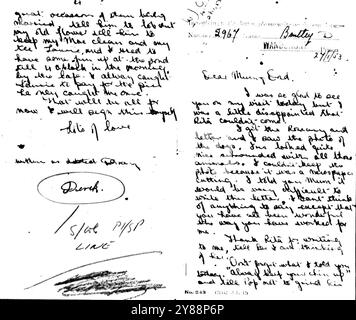 great occasion of them being
married, tell him to look out
my old flower tell him to
keep my Mac clean and my
, and I used to
have some fun up at the pond
till 4 o'clock in the morning
by the gaff. I always caught
to
he only caught the one.
That will be all for
now I will sign this
lots of love
Derek.
Number 2967 Bentley D
WANDSWORTH
27/1/53
Dear Mum & Dad.
I was so glad to see
you on my visit today but I
was a little disappointed that
Rita couldn't come.
I got the Rosary and
letter and I saw the photo of
the dogs. Iris looked quite
nice surrounded with all those
animals. I couldn't keep the
photo because it was a newspaper
cutting. I told you Mum it
would be very difficult to
write this letter, I can't think
of anything to say except that
you have all been wonderful
the way you have worked for
me.
Thank Rita for writing
to me, tell her I am thanking
Don't forget what I told you
today "always keep your chin up"
and tell Pop not to grind his
No. 243